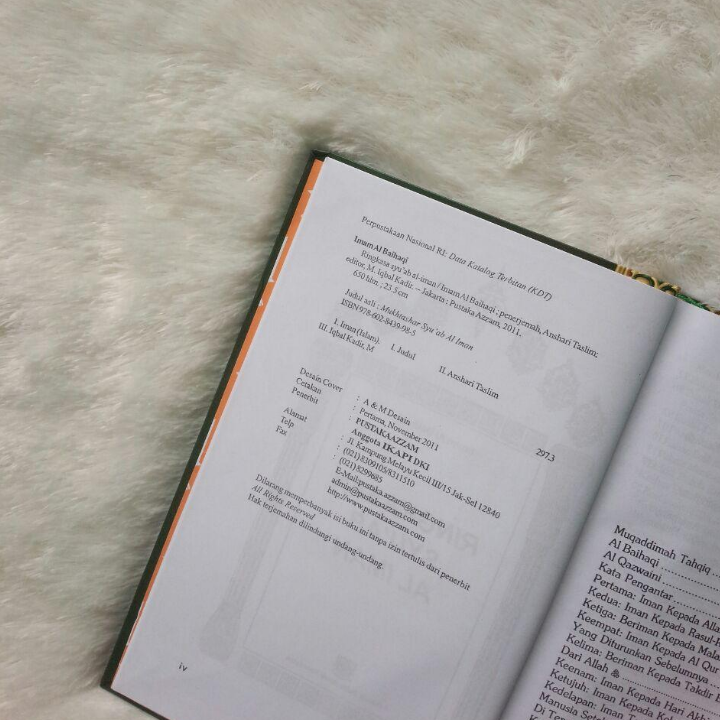 Perpustakaan Nasional RI: Data Katalog Terbitan (KDT)
Imam Al Baihaqi
Ringkasa syu'ab al-iman / Imam Al Baihaqi ; penerjemah, Anshari Taslim;
editor, M. Iqbal Kadir. — Jakarta : Pustaka Azzam, 2011.
650 hlm. ; 23.5 cm
Judul asli : Mukhtashar Syu'ab Al Iman
ISBN 978-602-8439-98-5
I. Iman (Islam). I. Judul II. Anshari Taslim
III. Iqbal Kadir, M
297.3
Desain Cover : A & M Desain
Cetakan : Pertama, November 2011
Penerbit : PUSTAKA AZZAM
Anggota IKAPI DKI
Alamat : Jl. Kampung Melayu Kecil III/15 Jak-Sel 12840
Telp : (021) 8309105/8311510
Fax : (021) 8299685
E-Mail:pustaka.azzam@gmail.com
admin@pustakaazzam.com
http://www.pustakaazzam.com
Dilarang memperbanyak isi buku ini tanpa izin tertulis dari penerbit
All Rights Reserved
Hak terjemahan dilindungi undang-undang.
iv
Muqaddimah Tahqiq
Al Baihaqi
Al Qazwaini
Kata Pengantar
Pertama: Iman Kepada Alla
Kedua: Iman Kepada Rasul-
Ketiga: Beriman Kepada Mala
Keempat: Iman Kepada Al Qur
Yang Diturunkan Sebelumnya
Kelima: Beriman Kepada Takdir
Dari Allah
Keenam: Iman Kepada Hari Akh
Ketujuh: Iman Kepada
Kedelapan: Iman
Manusia
Di